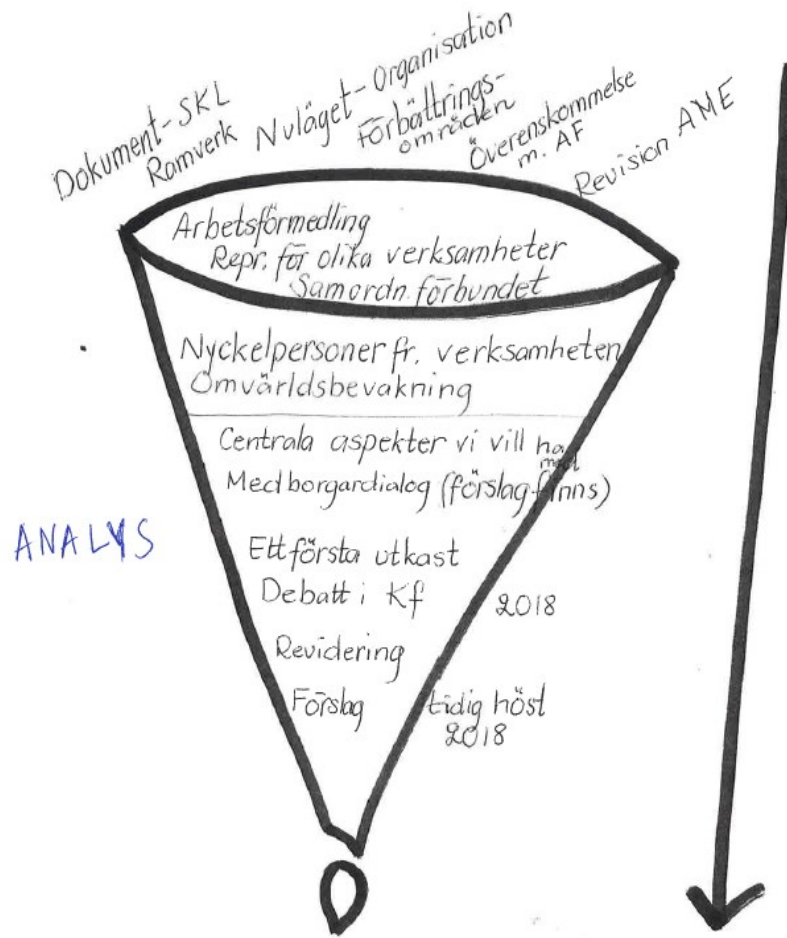 Dokument-SKL
Ramverk
Nuläget-Organisation
Förbättrings-
områden
Överenskommelse
m. AF
Revision AME
Arbetsförmedling
Repr. för olika verksamheter
Samordn.förbundet
Nyckelpersoner fr. verksamheten
Omvärldsbevakning
Centrala aspekter vi vill ha
med
Medborgardialog (förslag finns)
ANALYS
Ett första utkast
Debatt i Kf 2018
Revidering
Förslag tidig höst
2018